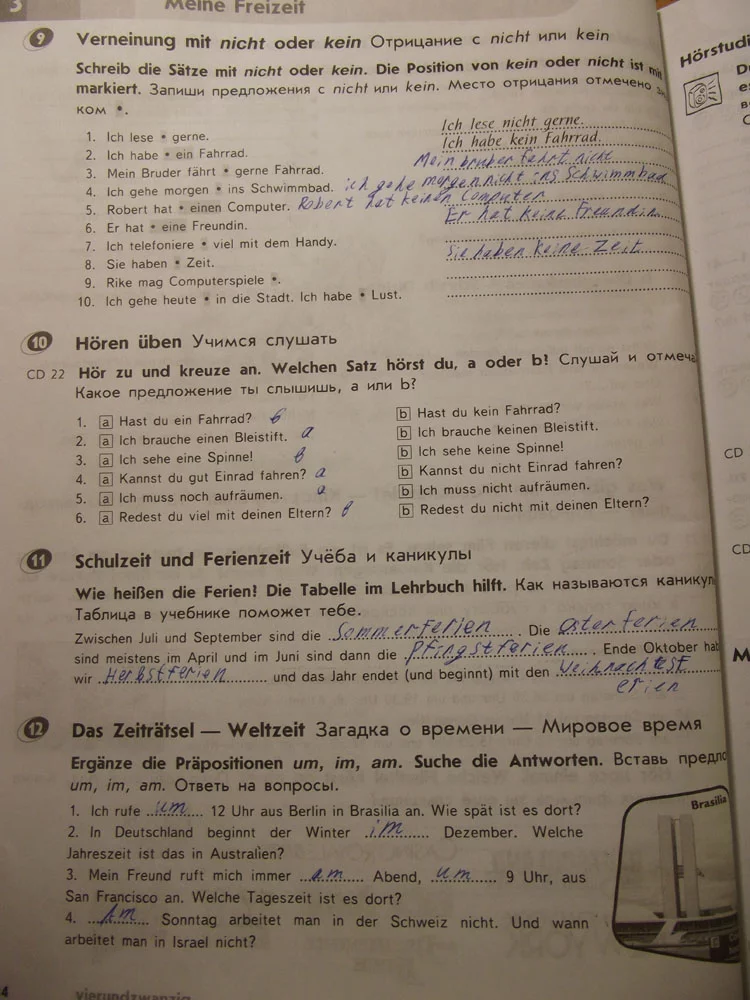 3 Meine Freizeit
9 Verneinung mit nicht oder kein Отрицание с nicht или kein
Schreib die Sätze mit nicht oder kein. Die Position von kein oder nicht ist mit
markiert. Запиши предложения с nicht или kein. Место отрицания отмечено
ком •.
1. Ich lese • gerne. Ich lese nicht gerne.
2. Ich habe • ein Fahrrad. Ich habe kein Fahrrad.
3. Mein Bruder fährt • gerne Fahrrad. Mein bruber fährt nicht
4. Ich gehe morgen • ins Schwimmbad. ich gehe morgen nicht ins Schwimmbad
5. Robert hat • einen Computer. Robert hat keinen Computer
6. Er hat • eine Freundin. Er hat keine Freundin
7. Ich telefoniere • viel mit dem Handy.
8. Sie haben • Zeit. Sie haben keine Zeit
9. Rike mag Computerspiele •.
10. Ich gehe heute • in die Stadt. Ich habe • Lust.
10 Hören üben Учимся слушать
CD 22 Hör zu und kreuze an. Welchen Satz hörst du, a oder b! Слушай и отмеча
Какое предложение ты слышишь, a или b?
1. a Hast du ein Fahrrad? в b Hast du kein Fahrrad?
2. a Ich brauche einen Bleistift. a b Ich brauche keinen Bleistift.
3. a Ich sehe eine Spinne! в b Ich sehe keine Spinne!
4. a Kannst du gut Einrad fahren? a b Kannst du nicht Einrad fahren?
5. a Ich muss noch aufräumen. a b Ich muss nicht aufräumen.
6. a Redest du viel mit deinen Eltern? в b Redest du nicht mit deinen Eltern?
11 Schulzeit und Ferienzeit Учёба и каникулы
Wie heißen die Ferien! Die Tabelle im Lehrbuch hilft. Как называются каникул
Таблица в учебнике поможет тебе.
Zwischen Juli und September sind die Sommerferien. Die Osterferien
sind meistens im April und im Juni sind dann die Pfingstferien. Ende Oktober hab
wir Herbstferien und das Jahr endet (und beginnt) mit den Weihnachtsf
erien
12 Das Zeiträtsel — Weltzeit Загадка о времени — Мировое время
Ergänze die Präpositionen um, im, am. Suche die Antworten. Вставь предло
um, im, am. Ответь на вопросы.
1. Ich rufe um 12 Uhr aus Berlin in Brasilia an. Wie spät ist es dort?
2. In Deutschland beginnt der Winter im Dezember. Welche
Jahreszeit ist das in Australien?
3. Mein Freund ruft mich immer am Abend, um 9 Uhr, aus
San Francisco an. Welche Tageszeit ist es dort?
4. Am Sonntag arbeitet man in der Schweiz nicht. Und wann
arbeitet man in Israel nicht?
Brasilia
4 vierundzwanzig
Hörstudi
CD
CD
M